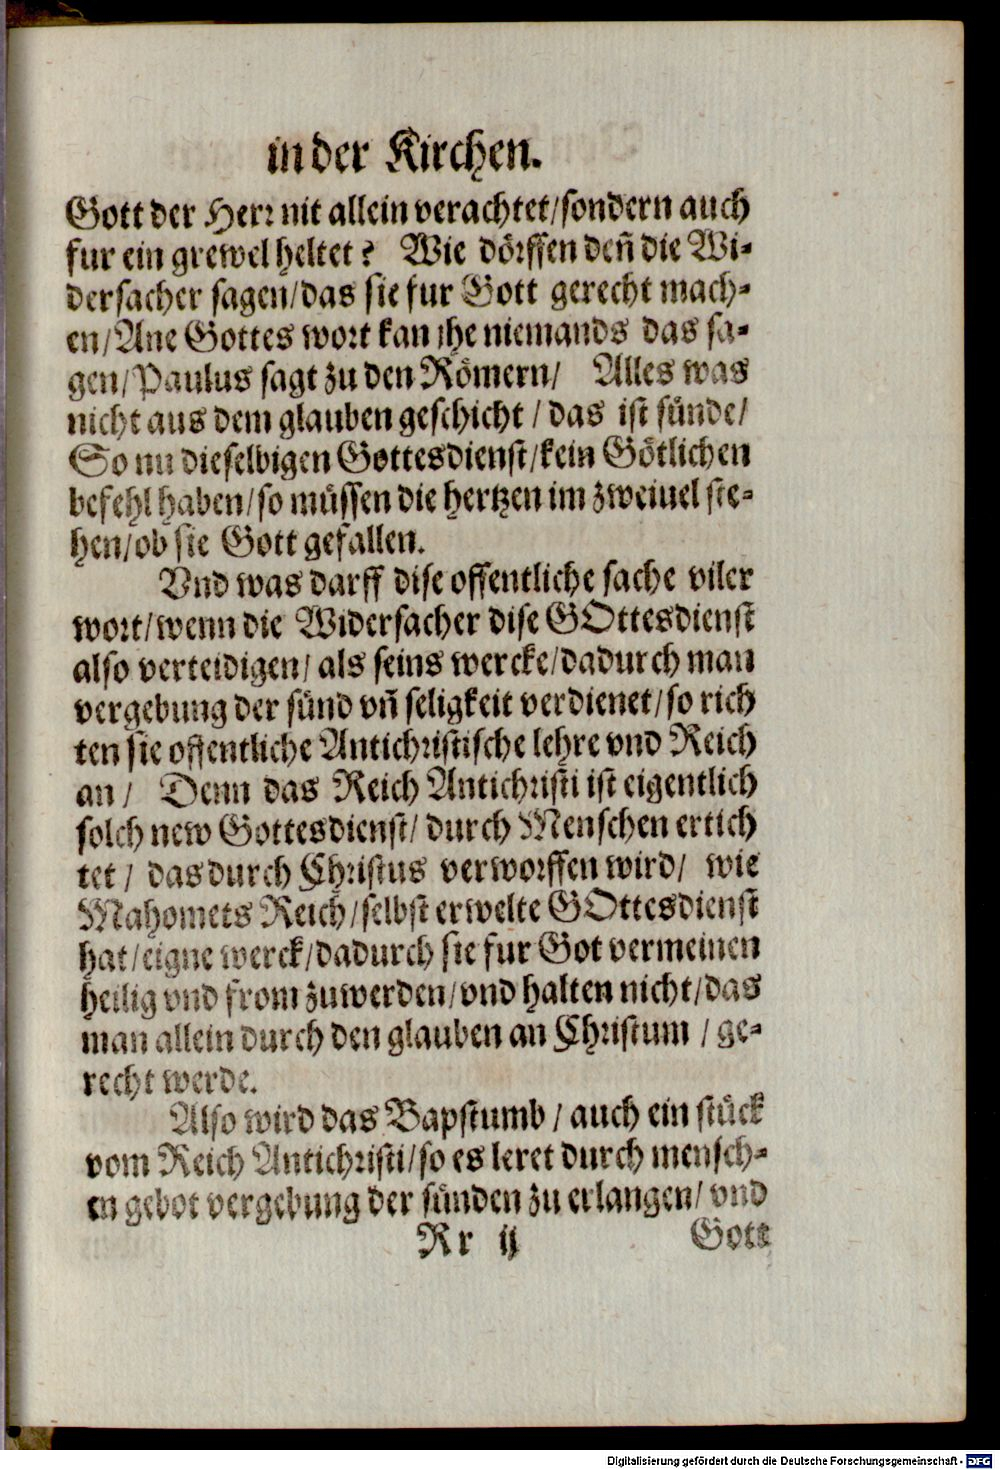 in der Kirchen.
Gott der Herr nit allein verachtet/sondern auch
fur ein grewel heltet? Wie dörffen deñ die Wi-
dersacher sagen/das sie fur Gott gerecht mach-
en/Ane Gottes wort kan jhe niemands das sa-
gen/Paulus sagt zu den Römern/ Alles was
nicht aus dem glauben geschicht / das ist sünde/
So nu dieselbigen Gottesdienst/kein Götlichen
befehl haben/so müssen die hertzen im zweiuel ste-
hen/ob sie Gott gefallen.
Vnd was darff dise offentliche sache viler
wort/wenn die Widersacher dise GOttesdienst
also verteidigen/ als seins wercke/dadurch man
vergebung der sünd vñ seligkeit verdienet/so rich
ten sie offentliche Antichristische lehre vnd Reich
an / Denn das Reich Antichristi ist eigentlich
solch new Gottesdienst/ durch Menschen ertich
tet / das durch Christus verworffen wird/ wie
Mahomets Reich/selbst erwelte GOttesdienst
hat/eigne werck/dadurch sie fur Got vermeinen
heilig vnd from zuwerden/vnd halten nicht/das
man allein durch den glauben an Christum / ge-
recht werde.
Also wird das Bapstumb / auch ein stück
vom Reich Antichristi/so es leret durch mensch-
en gebot vergebung der sünden zu erlangen/ vnd
Rr ij Gott
Digitalisierung gefördert durch die Deutsche Forschungsgemeinschaft - DFG